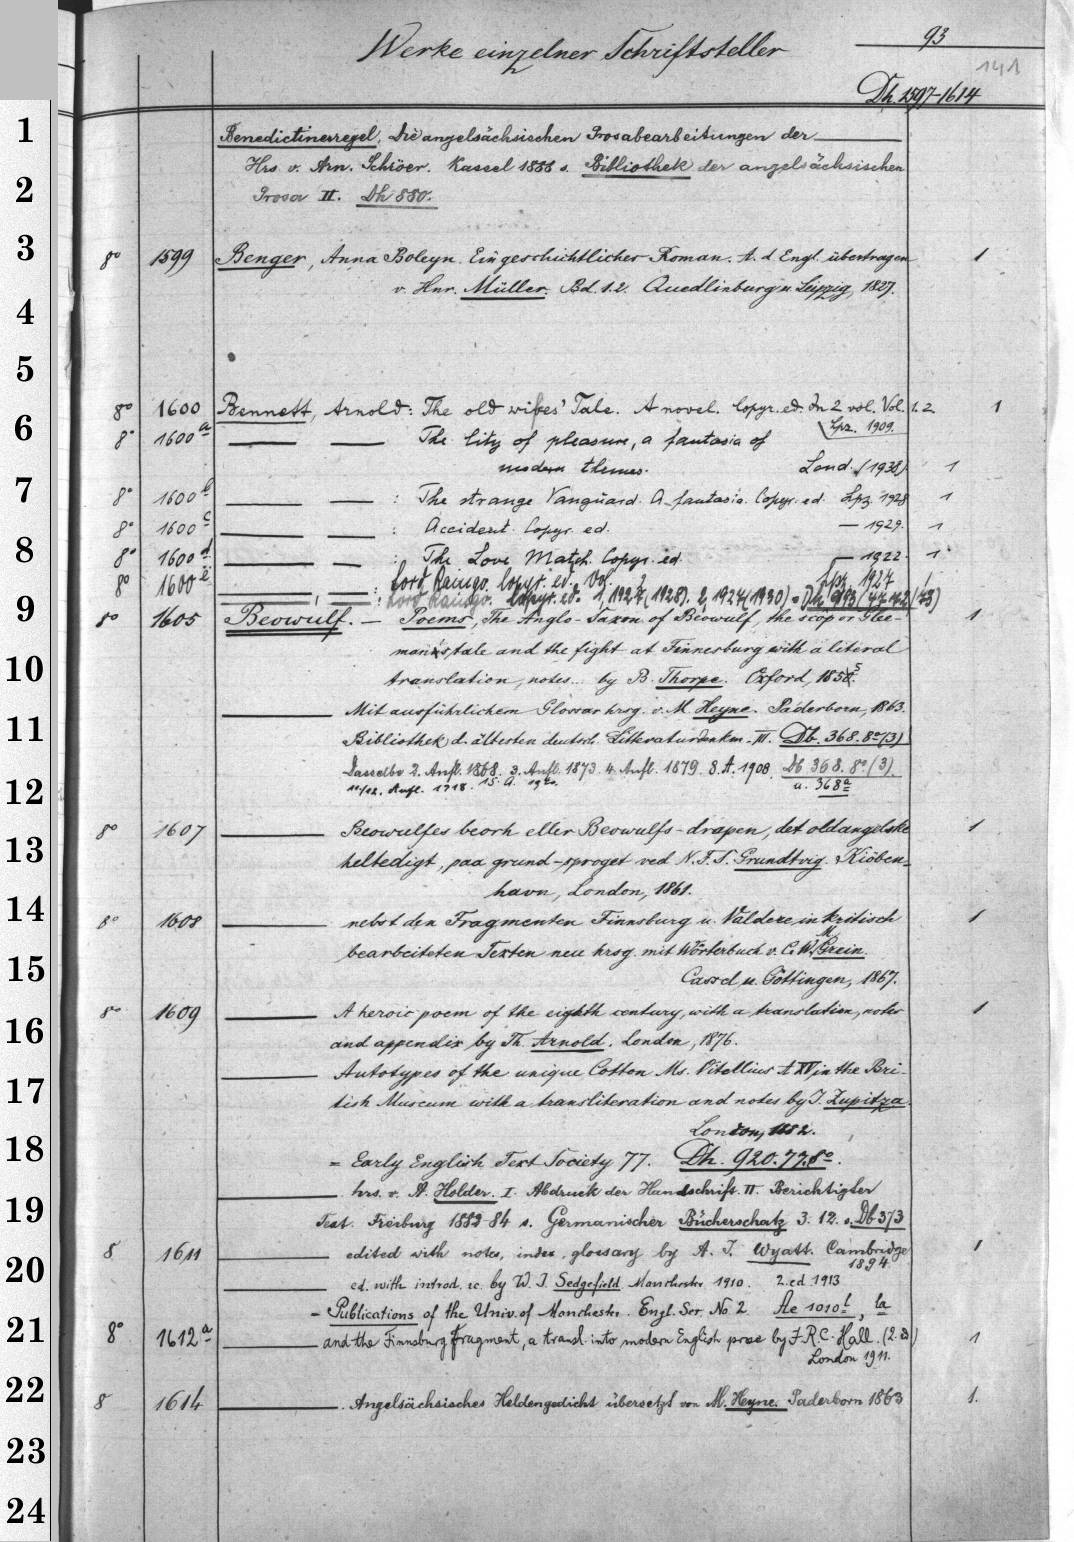 93
Werke einzelner Schriftsteller
141
Dh 1597-1614
1
Benedictinerregel, Die angelsächsischen Prosabearbeitungen der
Hrs. v. Arn. Schröer. Kassel 1888 s. Bibliothek der angelsächsischen
2
Prosa II. Dh 880.
3
8o 1599 Benger, Anna Boleyn. Ein geschichtlicher Roman. A. d. Engl. übertragen 1
v. Hnr. Müller. Bd. 1.2. Quedlinburg u. Leipzig, 1827.
4
5
8o 1600 Bennett, Arnold: The old wives' Tale. A novel. Copyr. ed. In 2 vol. Vol. 1.2. 1
Lpz. 1909.
6
8o 1600a — — The City of pleasure, a fantasia of
modern themes. Lond. (1938) 1
7
8o 1600b — — : The strange Vanguard. A fantasia. Copyr. ed. Lpz. 1928 1
8o 1600c — — : Accident. Copyr. ed. — 1929. 1
8
8o 1600d — — : The Love Match. Copyr. ed. — 1922. 1
8o 1600e — — : Lord Raingo. Copyr. ed. Vol. Lpz. 1927 1
: Lord Raingo. Copyr. ed. 1, 1927(1928). 2, 1927(1930) = Dh 913/4742 (/43)
9
8o 1605 Beowulf. — Poems, The Anglo-Saxon of Beowulf, the scop or Glee- 1
man's tale and the fight at Finnesburg with a literal
10
translation, notes... by B. Thorpe. Oxford, 1855.
— Mit ausführlichem Glossar hrsg. v. M. Heyne. Paderborn, 1863.
11
Bibliothek d. ältesten deutsch. Litteraturdenkm. III. Db. 368. 8o (3)
Dasselbe 2. Aufl. 1868. 3. Aufl. 1873. 4. Aufl. 1879. 8. A. 1908. Db 368. 8o (3)
11/12. Aufl. 1918. 15. A. 1940. u. 368a
12
8o 1607 — Beowulfes beorh eller Bjowulfs-drapen, det oldangelske 1
13
heltedigt, paa grund-sproget ved N. F. S. Grundtvig. Kiöben-
havn, London, 1861.
14
8o 1608 — nebst den Fragmenten Finnsburg u. Valdere in kritisch 1
bearbeiteten Texten neu hrsg. mit Wörterbuch v. C. W. M. Grein.
15
Cassel u. Göttingen, 1867.
8o 1609 — A heroic poem of the eighth century, with a translation, notes 1
16
and appendix by Th. Arnold. London, 1876.
— Autotypes of the unique Cotton Ms. Vitellius A XV in the Bri-
17
tish Museum with a transliteration and notes by J. Zupitza.
London, 1882.
18
= Early English Text Society 77. Dh. 920. 77. 8o.
— hrs. v. A. Holder. I. Abdruck der Handschrift. II. Berichtigter
19
Text. Freiburg 1882-84 s. Germanischer Bücherschatz 3. 12. s. Db 373
8 1611 — edited with notes, index, glossary by A. J. Wyatt. Cambridge 1
1894
20
— ed. with introd. rc. by W. J. Sedgefield Manchester 1910. 2. ed 1913
= Publications of the Univ. of Manchester. Engl. Ser. No 2 Ae 1010 b, 1a
21
8o 1612a — and the Finnsburg Fragment, a transl. into modern English prose by J. R. C. Hall. (2. ed) 1
London 1911.
22
8 1614 — . Angelsächsisches Heldengedicht übersetzt von M. Heyne. Paderborn 1863 1.
23
24